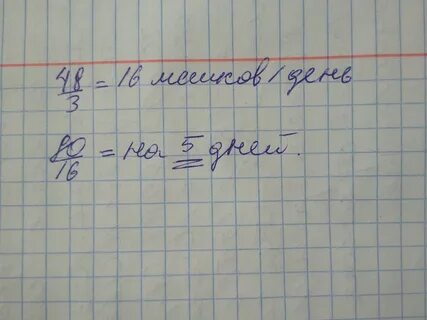 48/3 = 16 мешков / день
80/16 = на 5 дней.